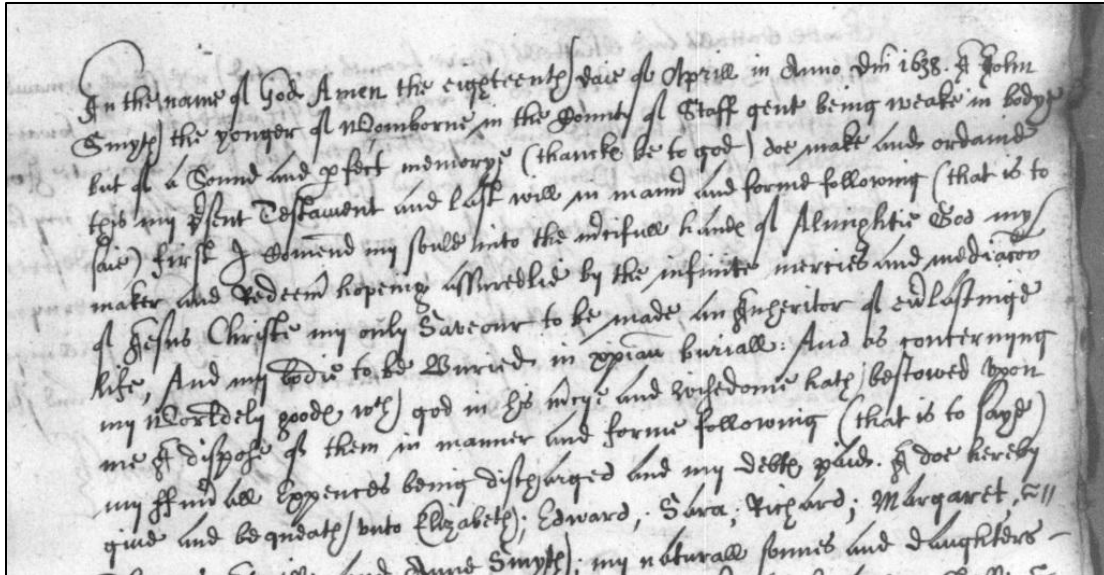 In the name of God Amen the eighteenth daie of Aprill in Anno Dm 1638. I John
Smyth the yonger of Womborne in the County of Staff gent being weake in bodye
but of a Sound and pfect memorye (thanckes be to god) doe make and ordaine
this my pſent Testament and last will in mann and forme following (that is to
saie) first I Comend my soule into the mcifull hands of Almightie God my
maker and Redeemr hopeing assuredlie by the infinite mercies and mediacon
of Jesus Christe my only Saveour to be made an Inheritor of evlastinge
life, And my bodie to be Buried in xpian buriall: And as concerning
my Worldely goods wch god in his mcye and wisedome hath bestowed upon
me I dispose of them in manner and forme following (that is to saye)
my ffunall Expences being discharged and my debts paid. I doe hereby
give and bequeath unto Elizabeth; Edward; Sara; Richard; Margaret,
and Anne Smyth; my naturall sonnes and daughters